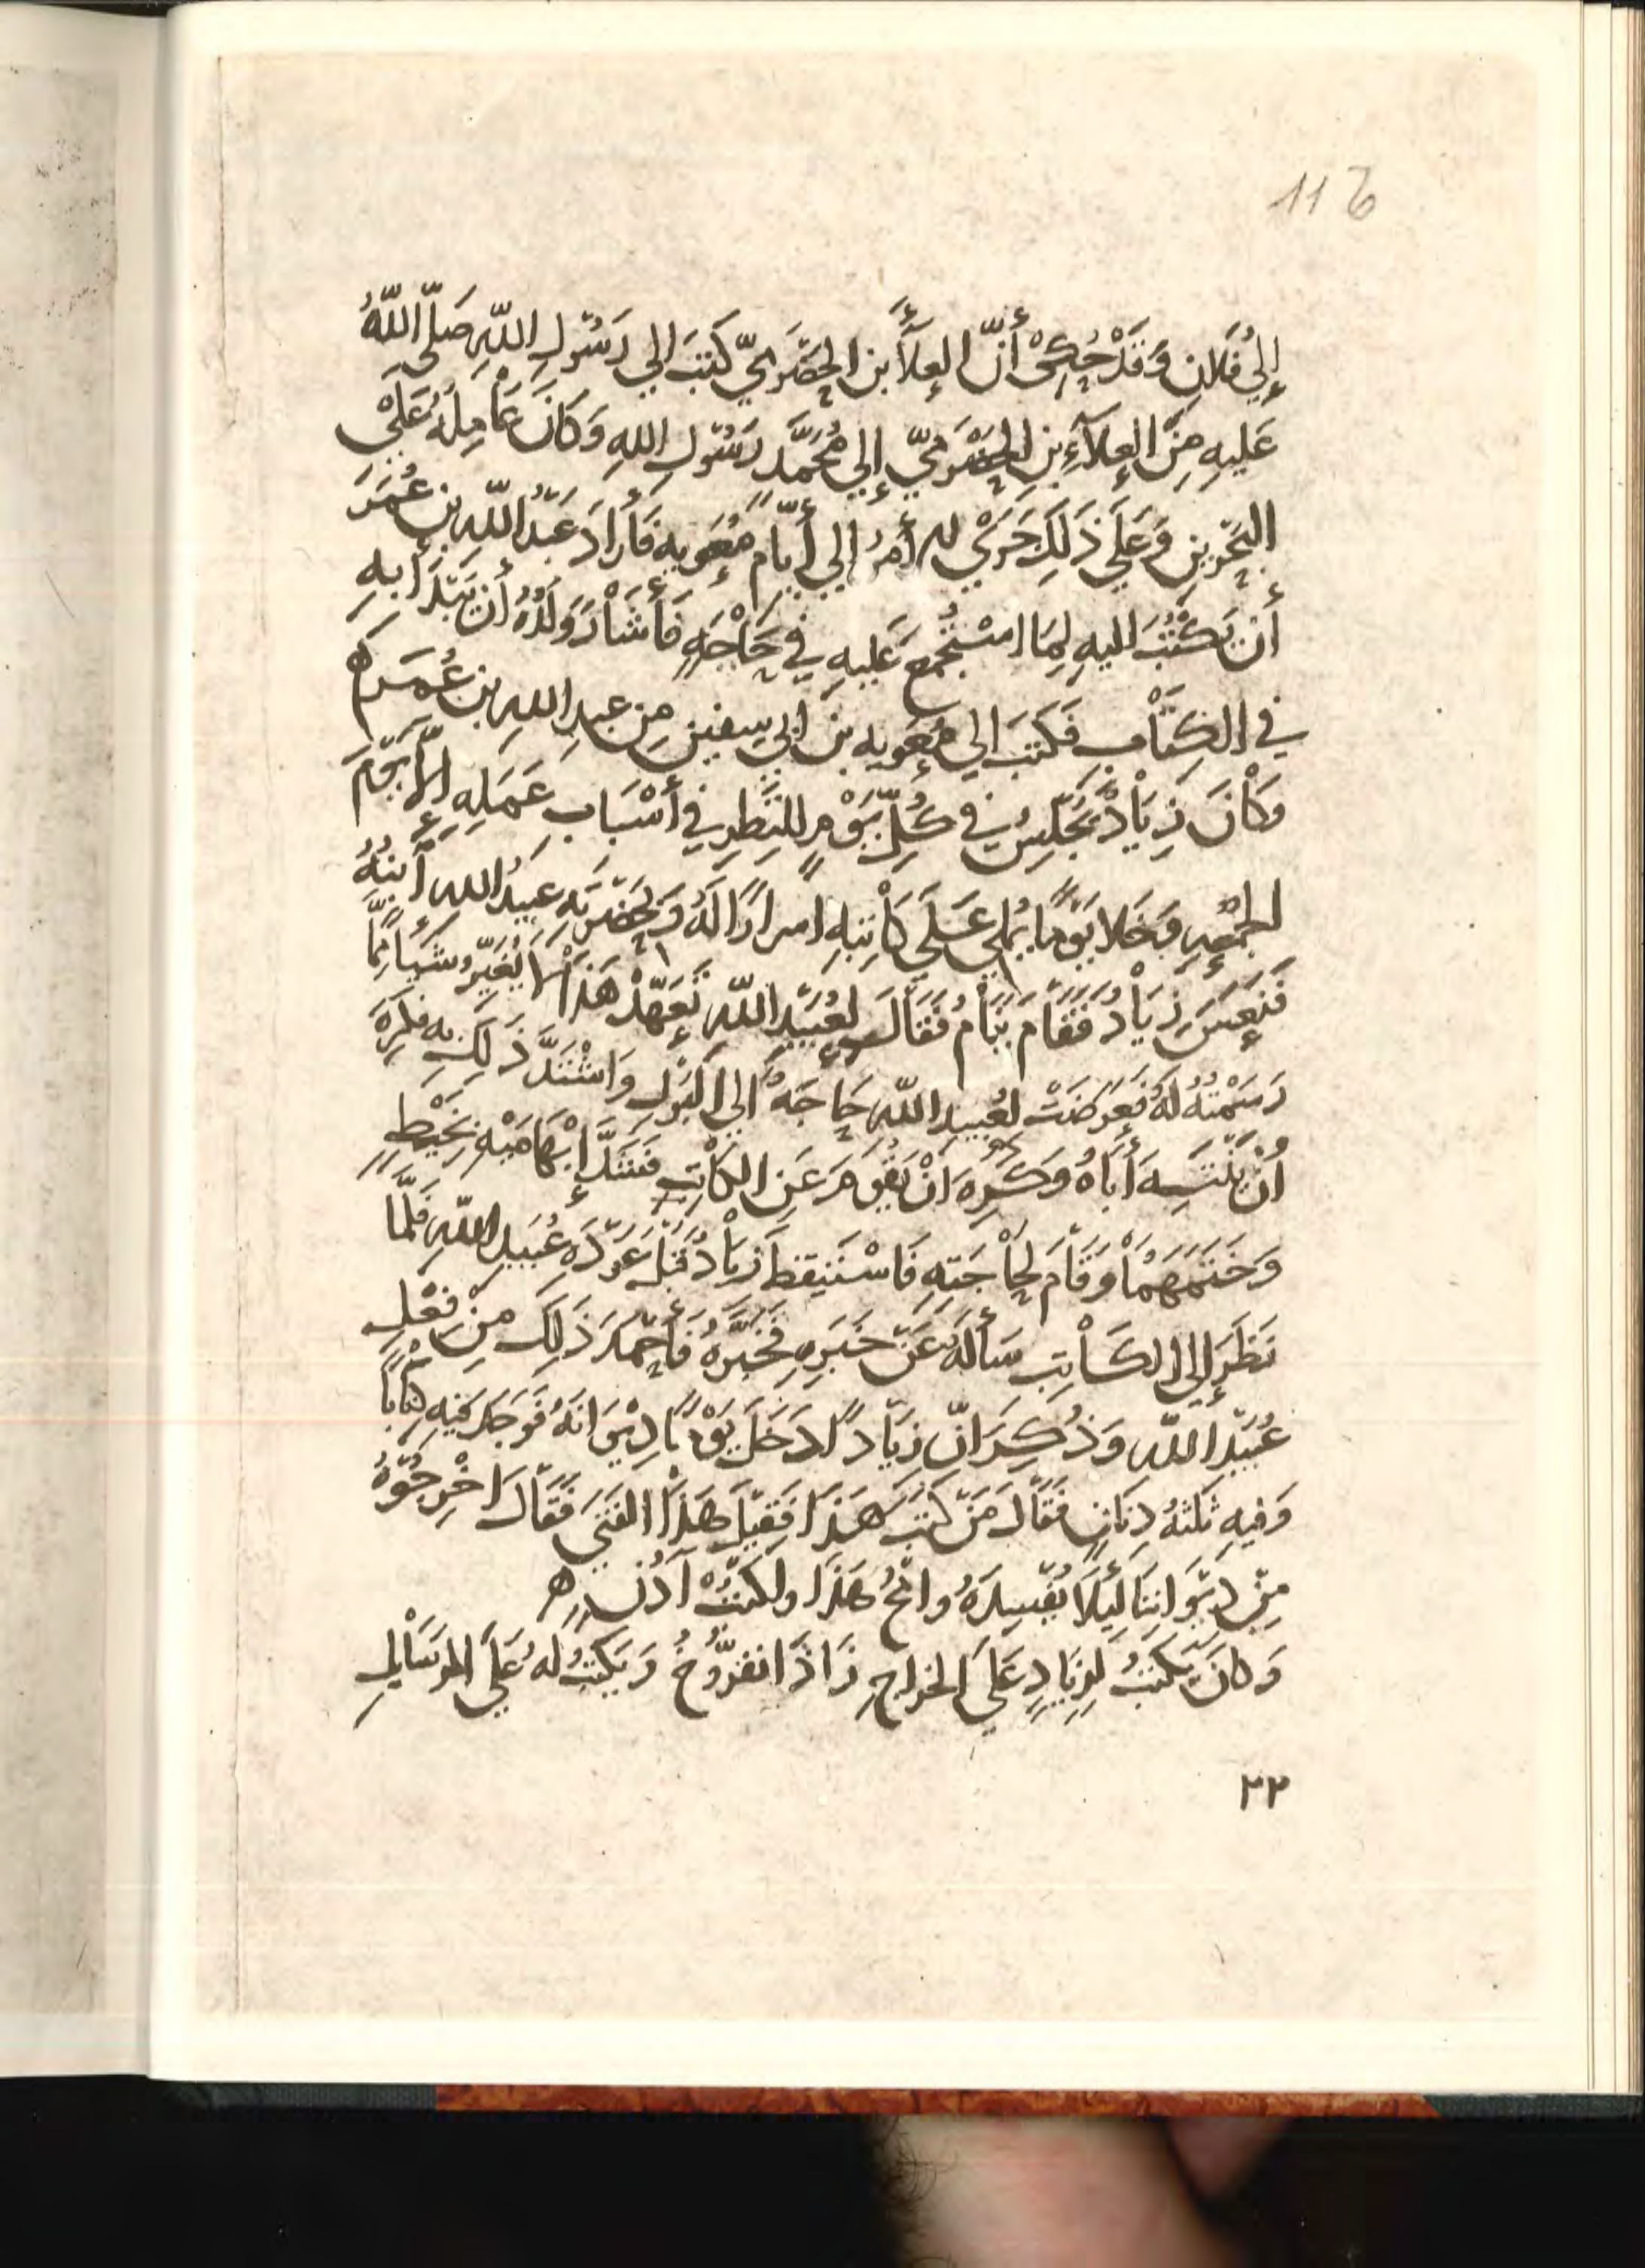 116
إِلي فُلَانٍ وَقَدْ حُكِىَ أَنَّ العلآءَ بن الحضرمِيّ كتَبَ الي رَسُولِ اللّهِ صَلّى اللّهُ
عَليهِ مِنَ العلآءِ بنِ الحضرَميّ إِلي مُحَمَّد رَسُولِ اللهِ وَكانَ عَامِلَهُ عَلَى
البَحْرَينِ وَعَلَي ذَلِكَ جَرَي الأمرُ الي أَيّامِ مُعَوِيه فَأَرادَ عَبدُ اللّهِ بن عُمَرَ
أَنْ يَكْتُبَ اليهِ لِمَا اسْتُجْمِعَ عَليهِ في حَاجَهٍ فَأشَارَ وَلَدُهُ أن يَبْتَدَأ بهِ
في الكِتَابِ فَكتبَ الي مُعَويه بن ابي سفين مِن عبدِ اللهِ بن عُمَرَ ه
وَكَانَ زِيَادٌ يَجْلِسُ في كُلِّ يَوْمٍ للنَّظرِ في أَسْبَابِ عَمَلِهِ إلّا يَومَ
الجُمْعهِ وَخَلا يَوْمًا يُملي عَلَي كَاتِبهِ اسرارًا لَهُ وَبحَضْرَتهِ عبيدُ الله أبنهُ
فَنَعِسَ زِيَادٌ فَقَامَ يَنَامُ فَقَالَ لعُبَيدِ اللّهِ تَعَهَّدْ هَذَا لا يُغيّرُ شَيأً مِمَّا
رَسَمْتُهُ لَهُ فَعَرضَتْ لعُبيدِ اللّهِ حَاجَهٌ الي البَوْلِ وَاشْتَدَّ ذَلِكَ به فكرِهَ
أنْ يُنَبِّهَ أَبَاهُ وَكَرِهَ انْ يَقُومَ عَنِ الكَاتِبِ فَشَدَّ إِبْهَامَيْهِ بِخَيْطٍ
وَخَتَمَهُمَا وَقَامَ لِحَاجَتهِ فَاسْتَيقظَ زيَادُ قَبْلَ عَوْدَهِ عُبَيدِ اللّهِ فَلَمَّا
نَظَرَ إلي الكَاتِبِ سَألَهُ عَنْ خَبَرِهِ فَخَبَّرَهُ فَأَحمَدَ ذَلِكَ مِنْ فِعْلِ
عُبَيْدِ اللّهِ وَذُكِرَ انّ زِيَادًا دَخَلَ يَوْمًا دِيْوَانَهُ فَوَجَدَ فيهِ كِتابًا
وَفيهِ ثلثهُ دِنانٍ فَقَالَ مَنْ كتَبَ هَذَا فَقيْلَ هَذَا الفتَي فَقَالَ اخْرجُوْهُ
مِنْ دِيْوَانِنَا لِئَلَا يُفْسِدَهُ وامْحُ هَذَا واكتُبْ أدُن ه
وَكانَ يَكتُبُ لِزيَادٍ عَلَي الخراجِ زَاذَانفرُّوخُ وَيَكتُب لهُ عَلَي الرسَايلِ
٣٣